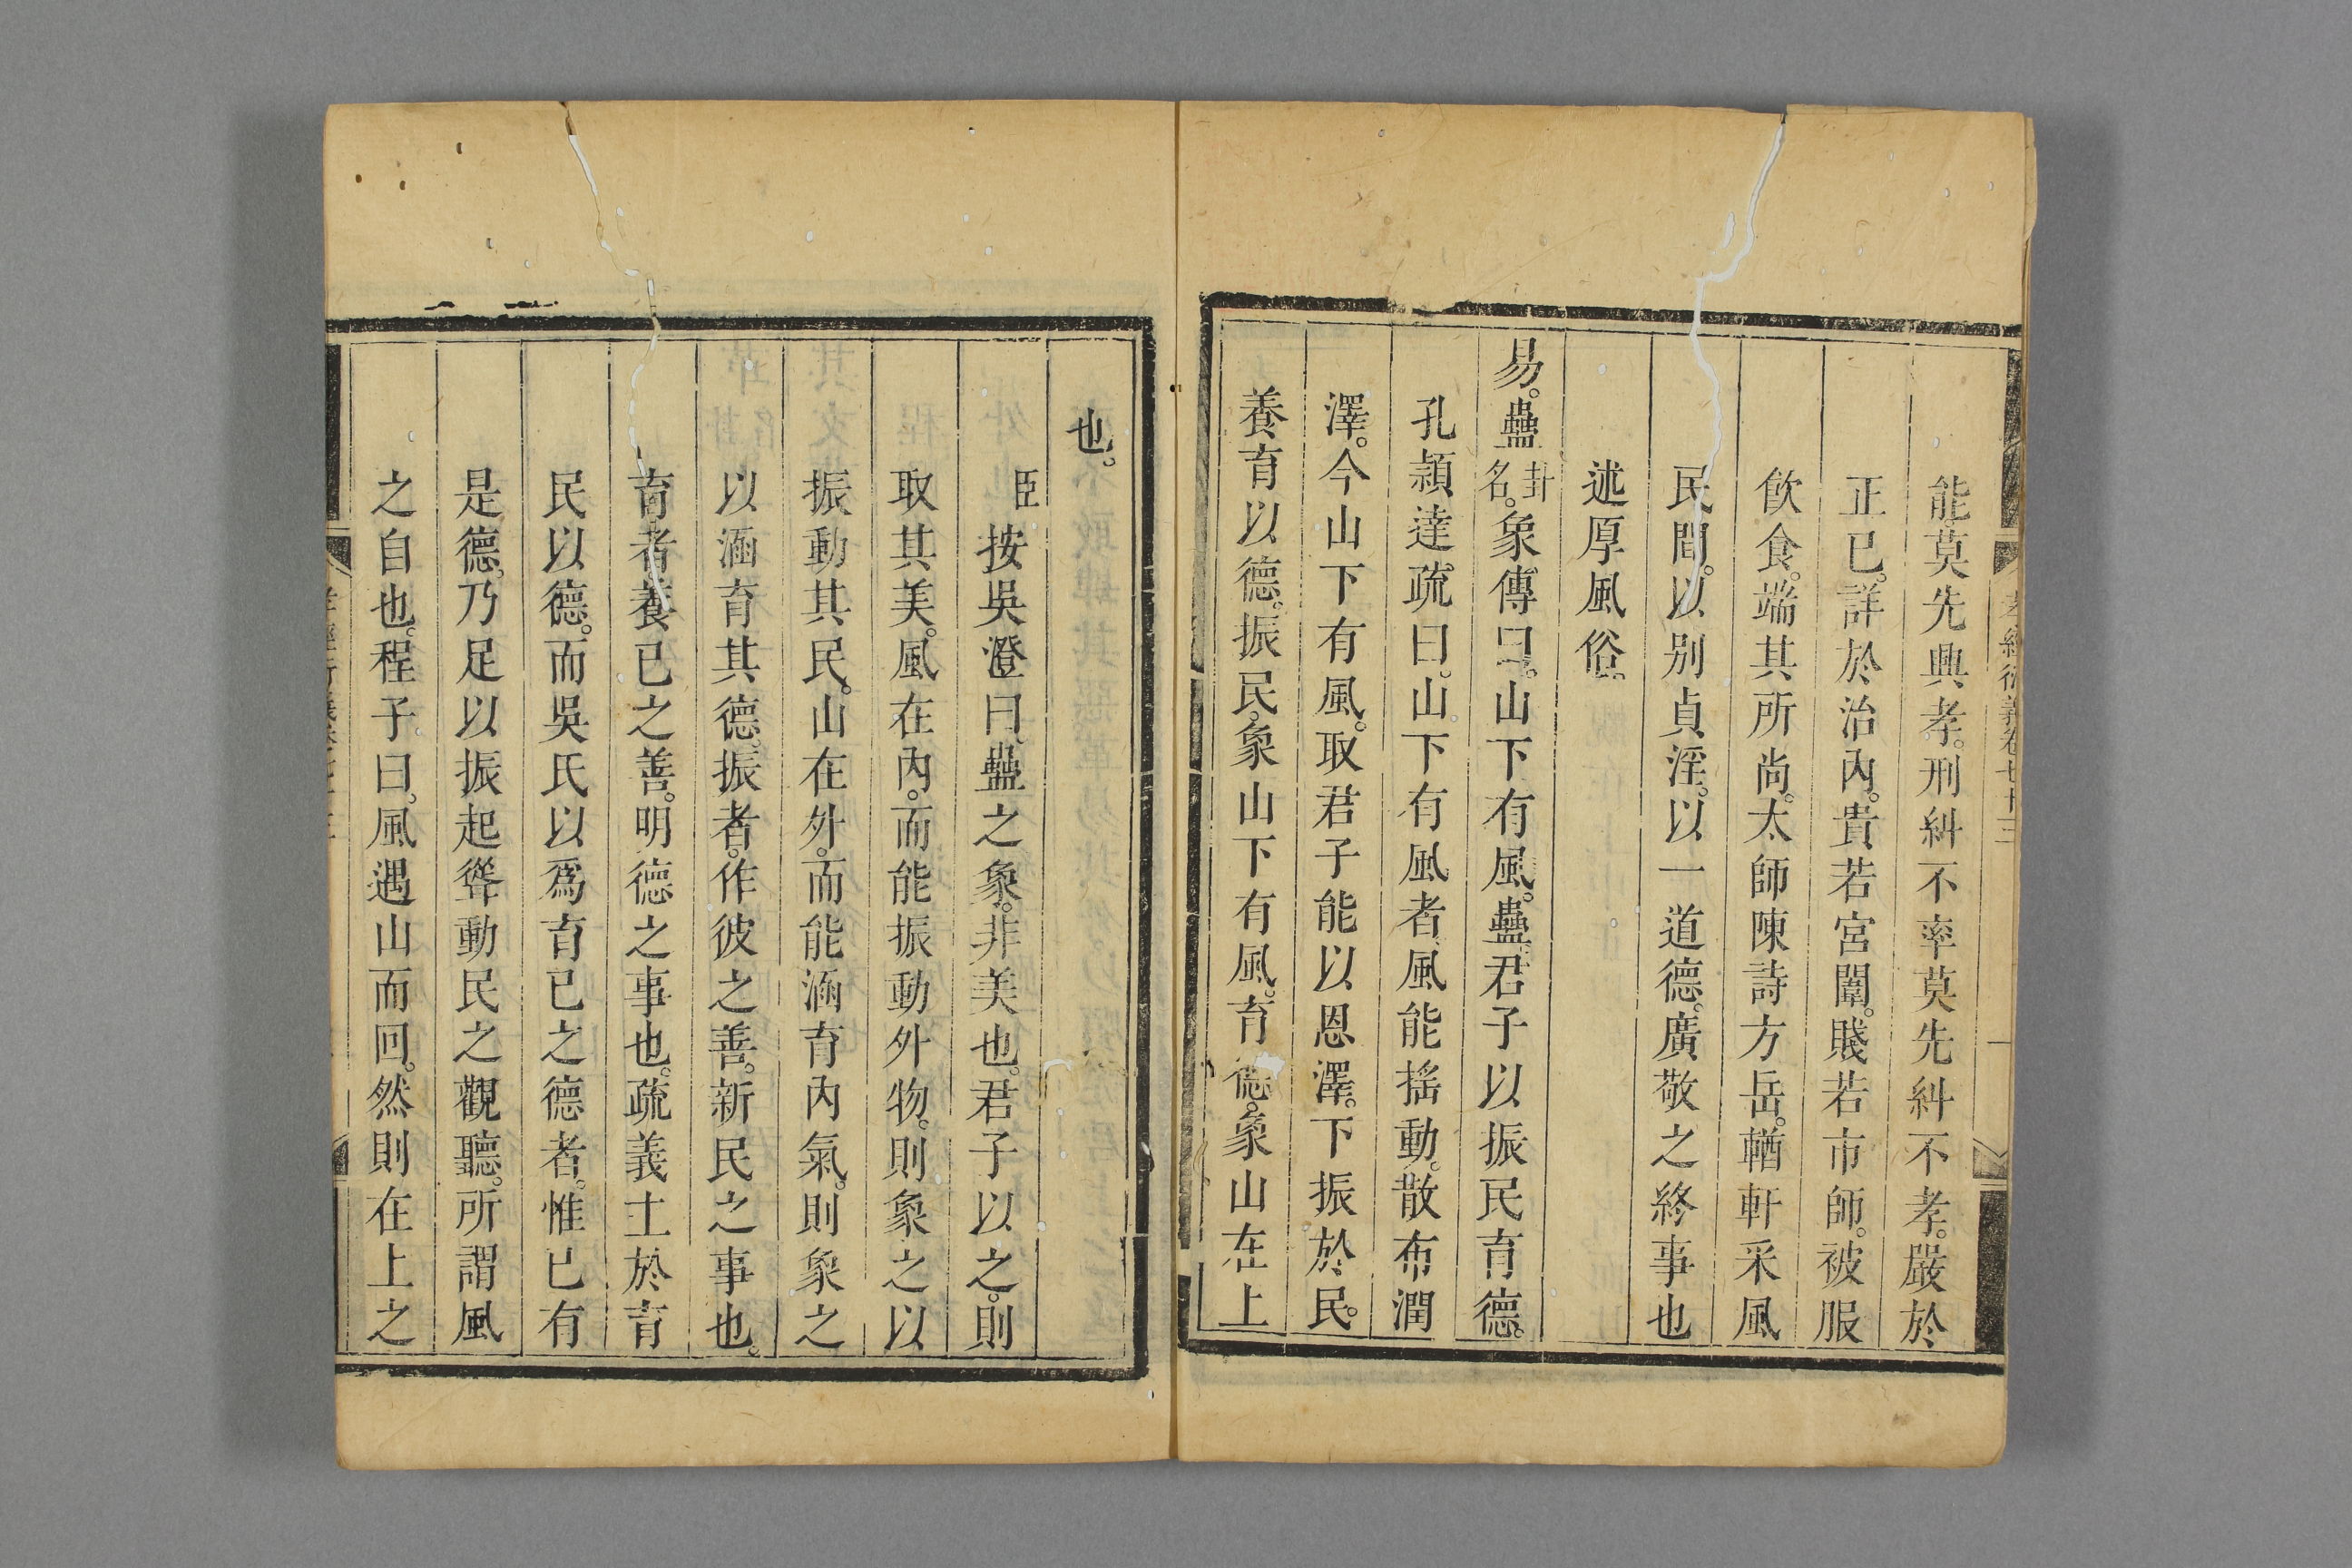 孝經衍義卷七十三
能莫先興孝刑糾不率莫先糾不孝嚴於
正已詳於治內貴若宮闈賤若市師被服
飲食端其所尚太師陳詩方岳輶軒采風
民間以別貞淫以一道德廣敬之終事也
述厚風俗
易蠱卦名象傳曰山下有風蠱君子以振民育德
孔穎達疏曰山下有風者風能搖動散布潤
澤今山下有風取君子能以恩澤下振於民
養育以德振民象山下有風育德象山在上
也
臣按吳澄曰蠱之象非美也君子以之則
取其美風在內而能振動外物則象之以
振動其民山在外而能涵育內氣則象之
以涵育其德振者作彼之善新民之事也
育者養已之善明德之事也疏義主於育
民以德而吳氏以爲育已之德者惟已有
是德乃足以振起聳動民之觀聽所謂風
之自也程子曰風遇山而回然則在上之